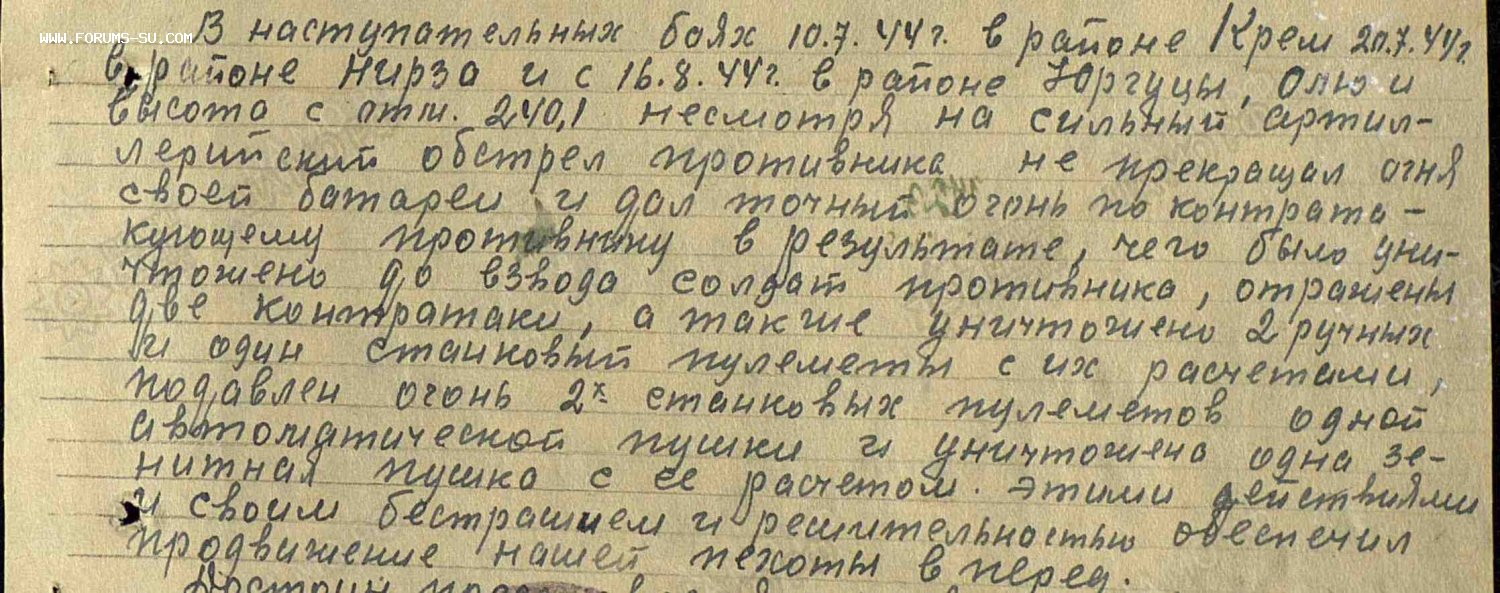 WWW.FORUMS-SU.COM
В наступательных боях 10.7.44г. в районе Крем 20.7.44г.
в районе Нирза и с 16.8.44г. в районе Юргуцы, Олю и
высота с отм. 240,1 несмотря на сильный артил-
лерийский обстрел противника не прекращал огня
своей батареи и дал точный огонь по контрата-
кующему противнику в результате, чего было уни-
чтожено до взвода солдат противника, отражены
две контратаки, а также уничтожено 2 ручных
и один станковый пулеметы с их расчетами,
подавлен огонь 2х станковых пулеметов одной
автоматической пушки и уничтожена одна зе-
нитная пушка с ее расчетом. Этими действиями
и своим бестрашием и решительностью обеспечил
продвижение нашей пехоты в перед.
Достоин